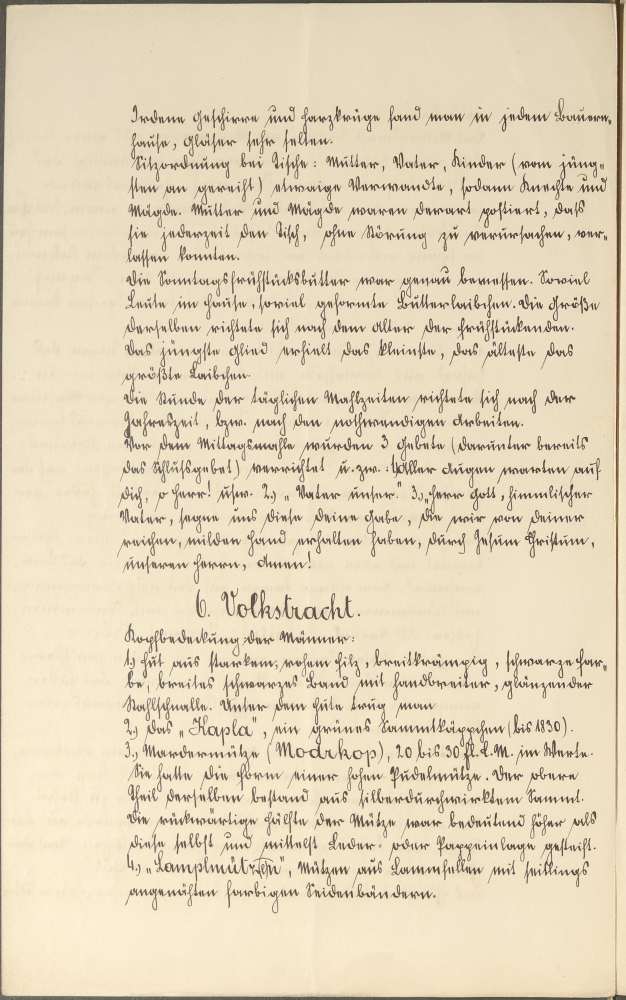 Irdene Geschirre und Harzkrüge fand man in jedem Bauern-
hause, Gläser sehr selten.
Sitzordnung bei Tische: Mutter, Vater, Kinder (vom jüng-
sten an gereiht) etwaige Verwandte, sodann Knechte und
Mägde. Mutter und Mägde waren derart postiert, dass
sie jederzeit den Tisch, ohne Störung zu verursachen, ver-
lassen konnten.
Die Sonntagsfrühstücksbutter war genau bemessen. Soviel
Leute im Hause, soviel geformte Butterlaibchen. Die Größe
derselben richtete sich nach dem Alter der Frühstückenden.
Das jüngste Glied erhielt das kleinste, das älteste das
größte Laibchen.
Die Stunde der täglichen Mahlzeiten richtete sich nach der
Jahreszeit, bzw. nach den nothwendigen Arbeiten.
Vor dem Mittagsmahle wurden 3 Gebete (darunter bereits
das Schlußgebet) verrichtet u. zw.: 1.) Aller Augen warten auf
dich, o Herr! usw. 2.) „Vater unser." 3.) „Herr Gott, himmlischer
Vater, segne uns diese deine Gabe, die wir von deiner
reichen, milden Hand erhalten haben, durch Jesum Christum,
unseren Herrn, Amen!
6. Volkstracht.
Kopfbedeckung der Männer:
1.) Hut aus starkem, rohem Filz, breitkrämpig, schwarze Far-
be, breites schwarzes Band mit handbreiter, glänzender
Stahlschnalle. Unter dem Hute trug man
2.) das „Kapla", ein grünes Sammtkäppchen (bis 1830).
3.) Mardermütze (Modrkop), 20 bis 30 fl. C.M. im Werte.
Sie hatte die Form einer hohen Pudelmütze. Der obere
Theil derselben bestand aus silberdurchwirktem Sammt.
Die rückwärtige Hälfte der Mütze war bedeutend höher als
diese selbst und mittelst Leder- oder Pappeinlage gesteift.
4.) Mützen aus Lammfellen mit seitlings
angenähten farbigen Seidenbändern.